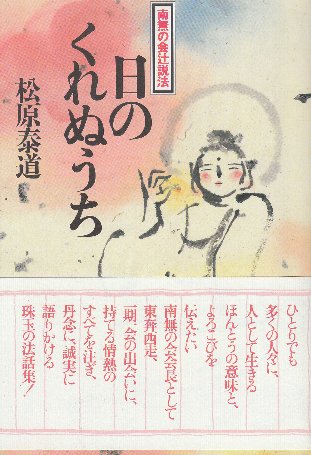 南無の会辻説法
日の
くれぬうち
松原泰道
ひとりでも
多くの人々に、
人として生きる
ほんとうの意味と、
よろこびを
伝えたい
南無の会会長として
東奔西走、
一期一会の出会いに、
持てる情熱の
すべてを注ぎ、
丹念に、誠実に
語りかける
珠玉の法話集!